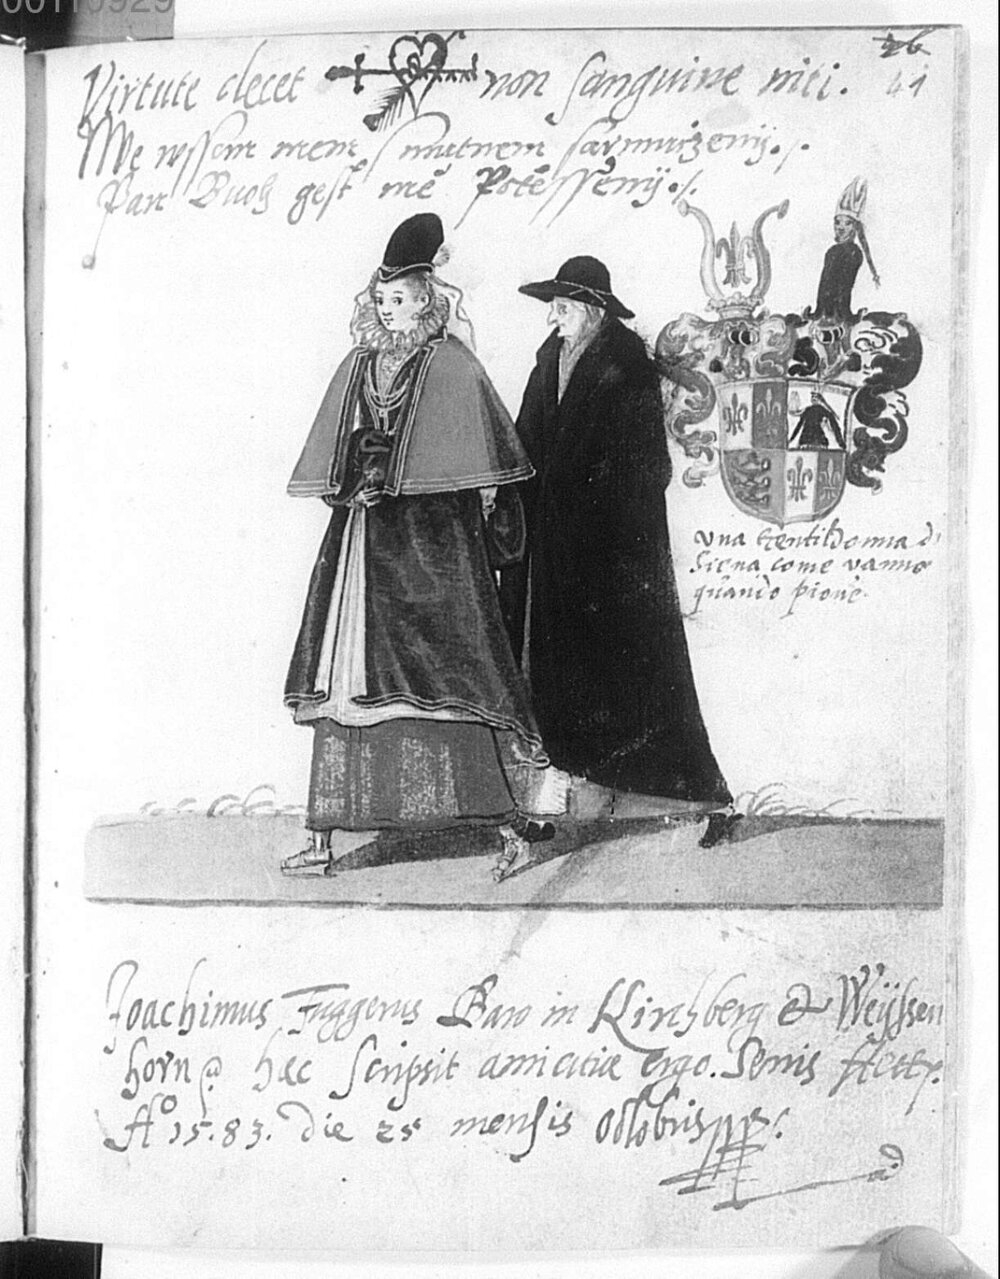 00110929
26
41
Virtute decet non sanguine niti.
We wssem mem smutnem sarmutzenij.
Pan Buoh gest mé Potéssénij.
Vna Gentildonna di
Siena come vanno
quando pioue.
Joachimus Fuggerus Baro in Kirchberg & Weÿssen
horn hæc scripsit amicitiæ ergo. Senis
Aº 15.83. die 25 mensis octobris